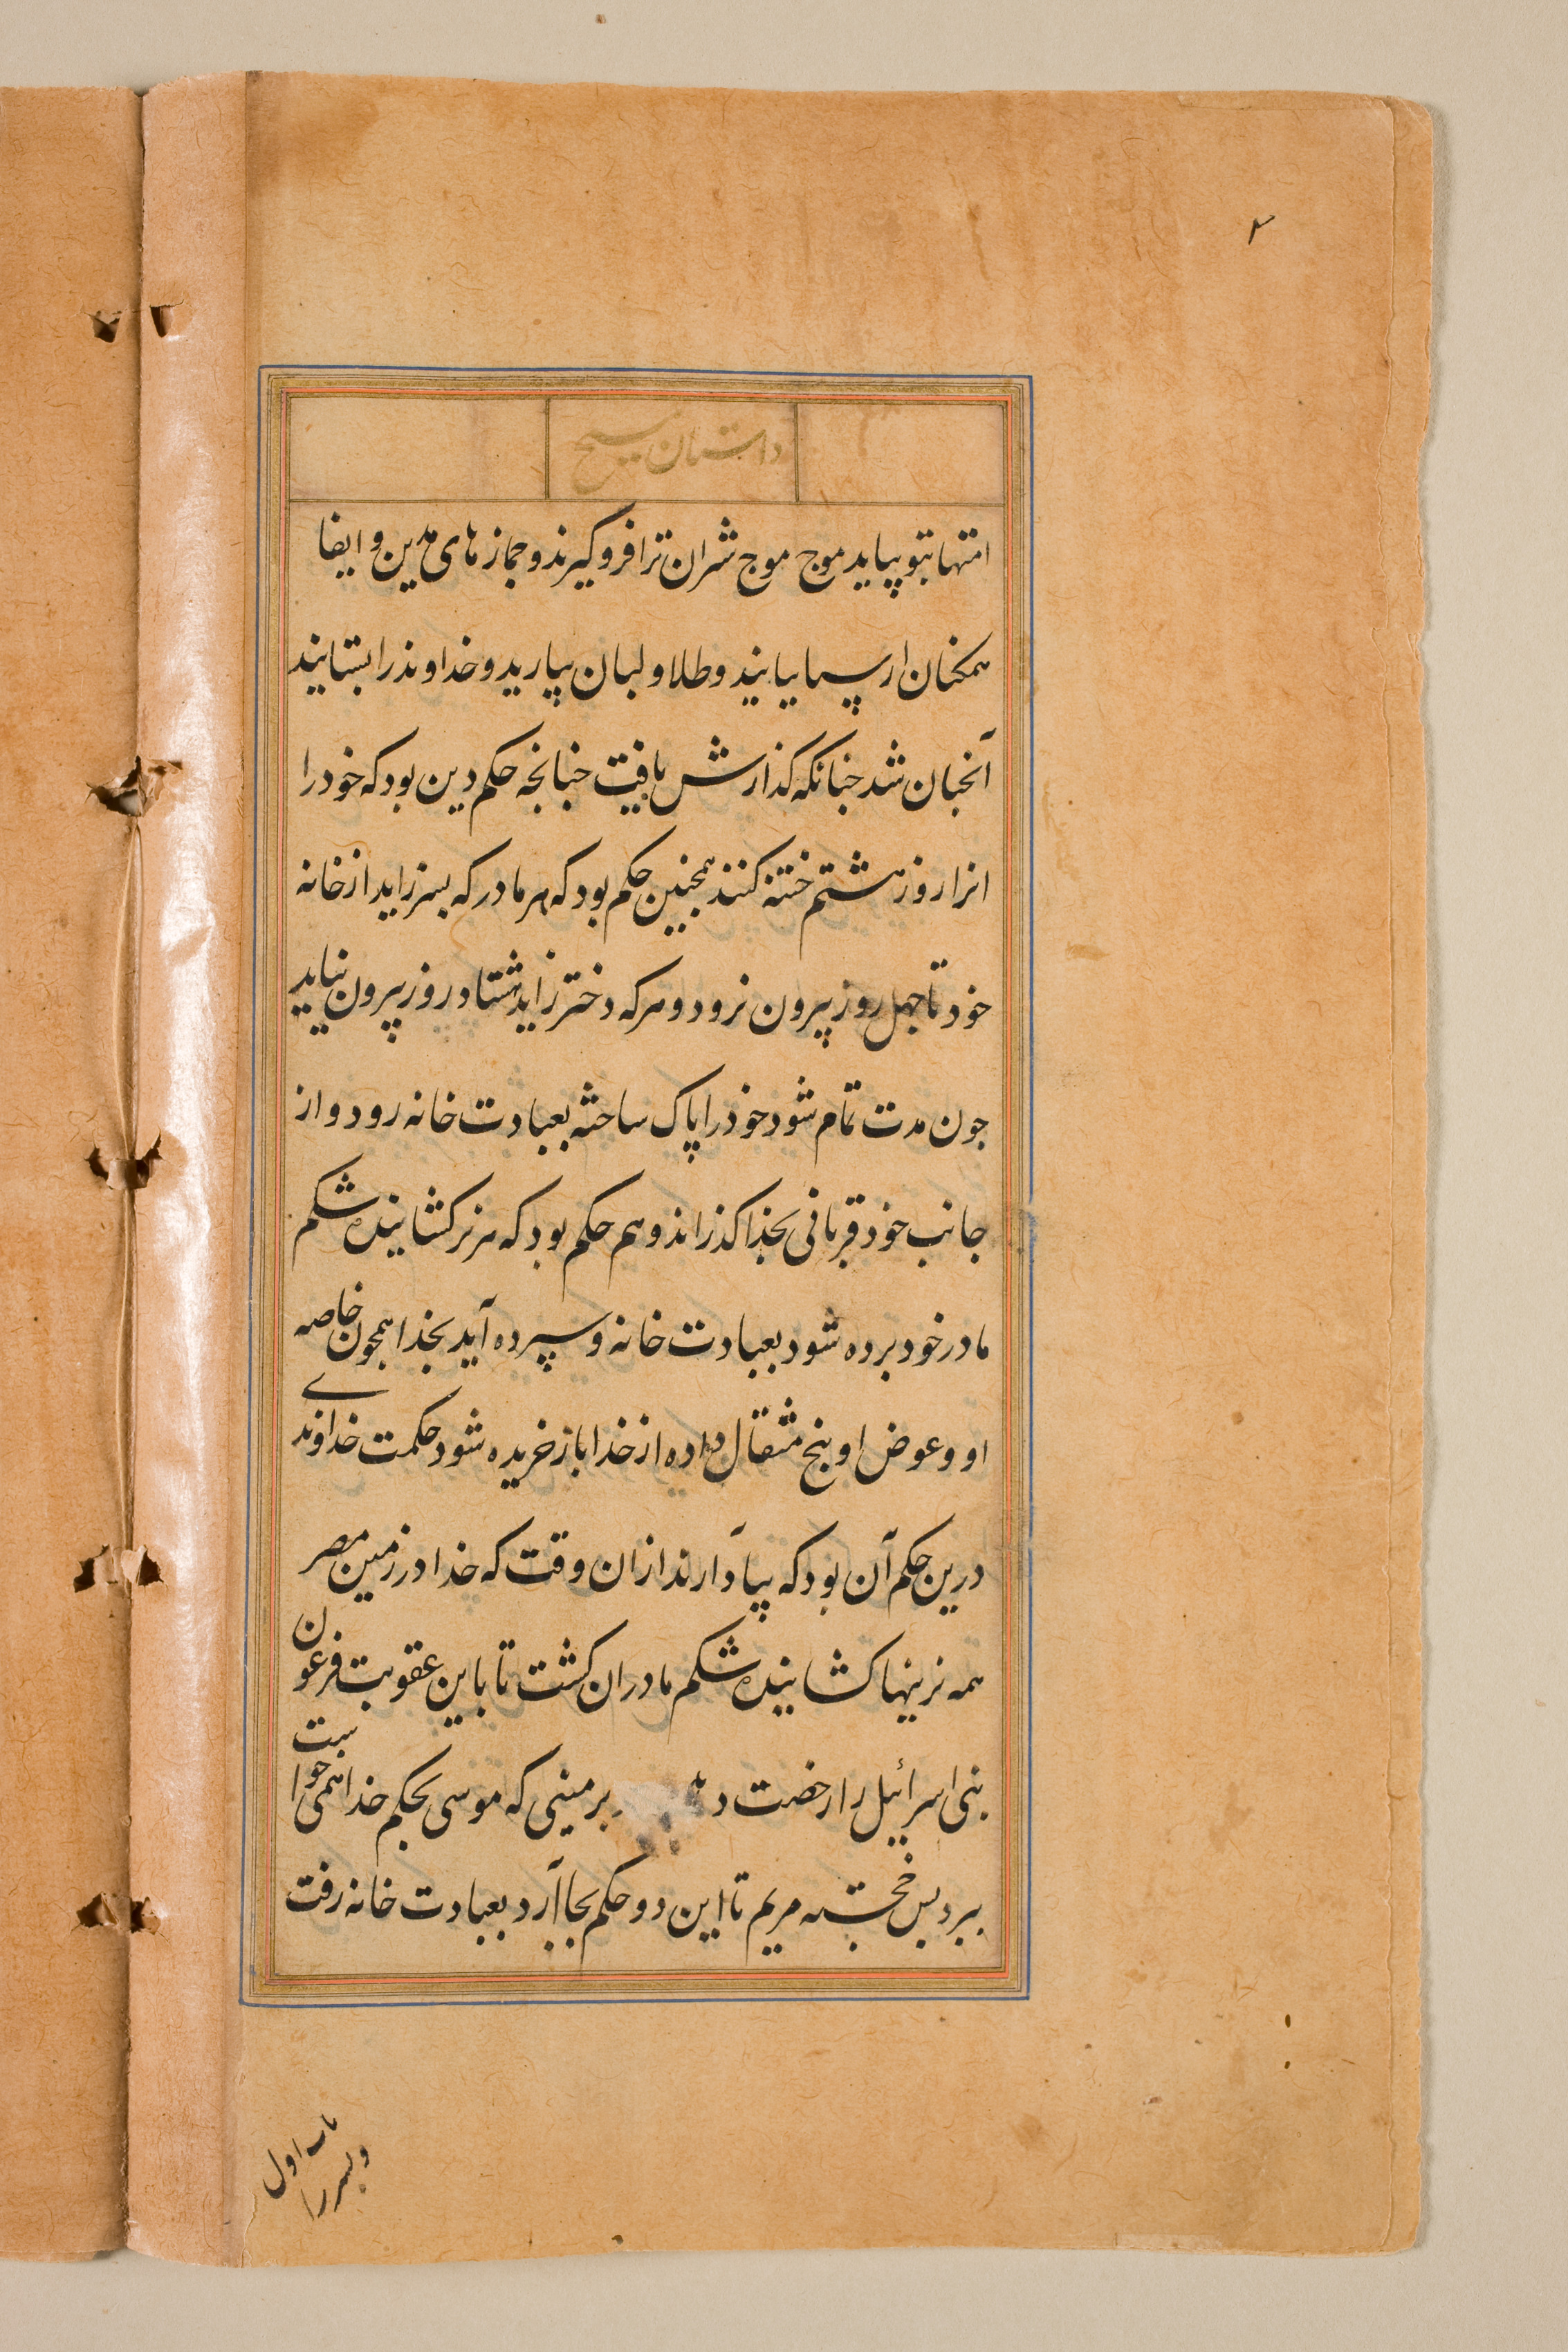 ۴
داستان مسیح
امتها بتو بیاید موج موج شتران ترا فروگیرند و جمازهای مدین و ایفا
همکنان از سبا بیایند و طلا و لبان بیارید و خداوند را بستایند
آنجنان شد جنانکه کذارش یافت جنانجه حکم دین بود که خود را
انرا روز هشتم ختنه کنند همجنین حکم بود که هر مادر که بسر زاید از خانه
خود تا جهل روز بیرون نرود و هر که دختر زاید هشتاد روز بیرون نیاید
جون مدت تمام شود خود را پاک ساخته بعبادت خانه رود و از
جانب خود قربانی بخدا کذراند و هم حکم بود که هر نر کشاینده شکم
مادر خود برده شود بعبادت خانه و سپرده آید بخدا همجون خاصه
او و عوض او بنج مثقال داده از خدا باز خریده شود حکمت خداوندے
درین حکم آن بود که بیاد آرند ازان وقت که خدا در زمین مصر
همه نرینها کشاینده شکم مادران کشت تا باین عقوبت فرعون
بنی اسرائیل را رخصت دهد برمینی که موسی بحکم خدا همی خواست
ببرد بس خجسته مریم تا این دو حکم بجا آرد بعبادت خانه رفت
و بسر را
اول